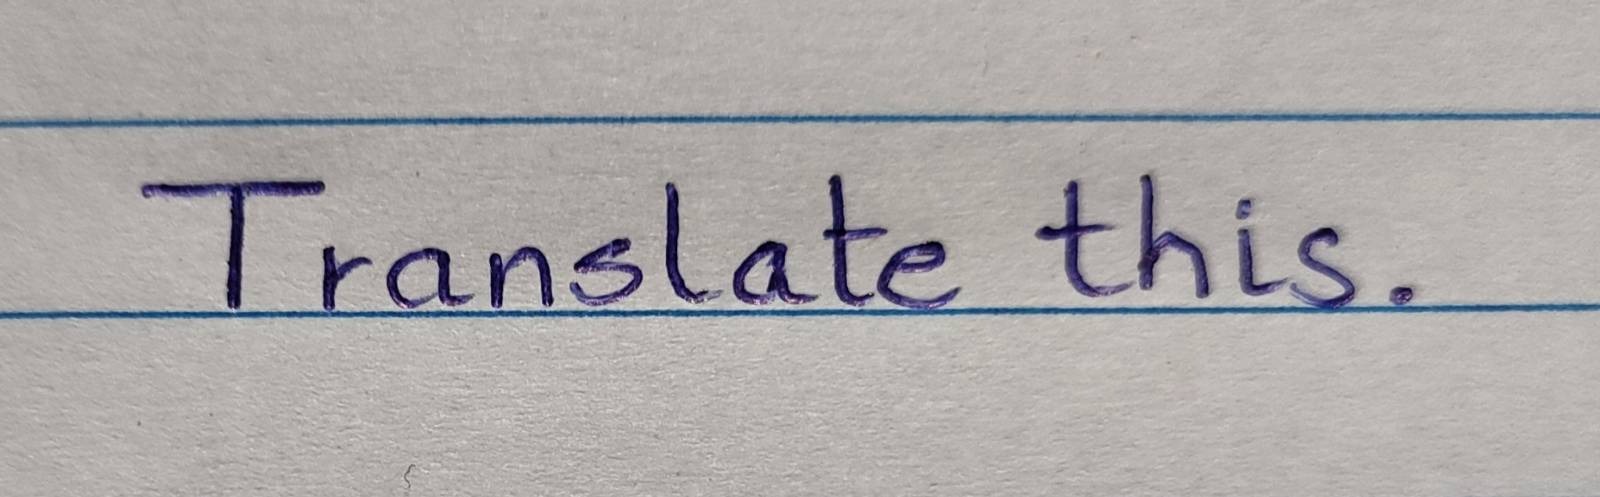 Translate this.